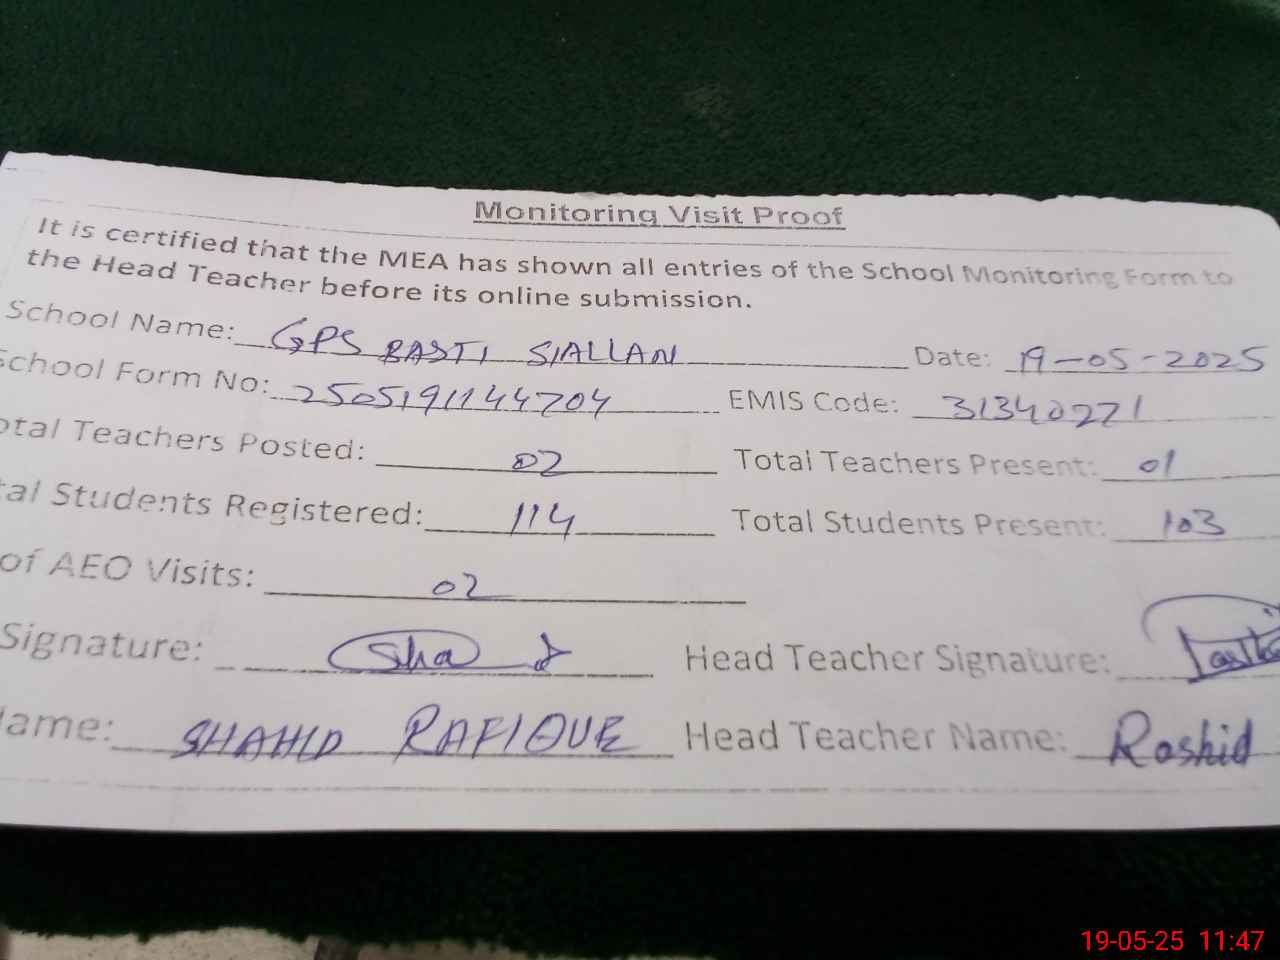 Monitoring Visit Proof
It is certified that the MEA has shown all entries of the School Monitoring Form to
the Head Teacher before its online submission.
School Name: GPS BASTI SIALLAN Date: 19-05-2025
School Form No: 2505191144704 EMIS Code: 31340271
otal Teachers Posted: 02 Total Teachers Present: 01
tal Students Registered: 114 Total Students Present: 103
of AEO Visits: 02
Signature: Sha Head Teacher Signature:
lame: SHAHID RAFIQUE Head Teacher Name: Rashid
19-05-25 11:47